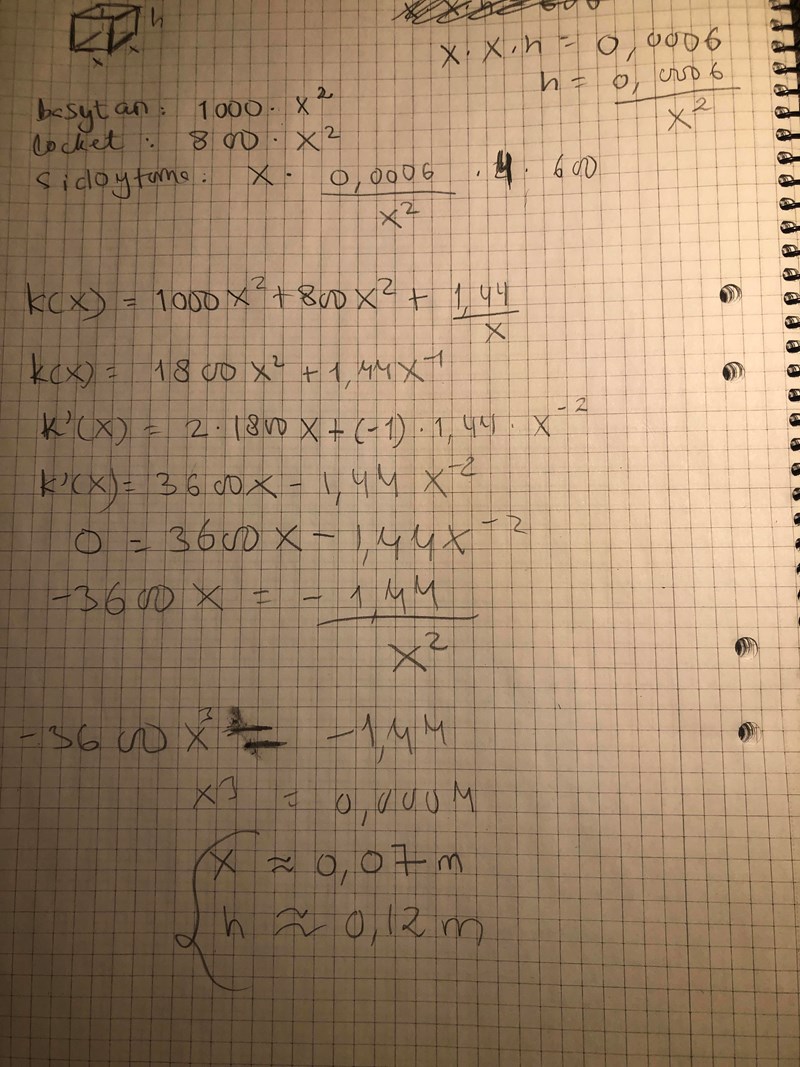 h
x x
x · x · h = 0,0006
h = 0,0006 / x²
basytan: 1000 · x²
locket: 800 · x²
sidoytorna: x · 0,0006 / x² · 4 · 600
k(x) = 1000x² + 800x² + 1,44 / x
k(x) = 1800x² + 1,44x⁻¹
k'(x) = 2 · 1800x + (-1) · 1,44 · x⁻²
k'(x) = 3600x - 1,44x⁻²
0 = 3600x - 1,44x⁻²
-3600x = - 1,44 / x²
-3600x³ = -1,44
x³ = 0,0004
x ≈ 0,07 m
h ≈ 0,12 m